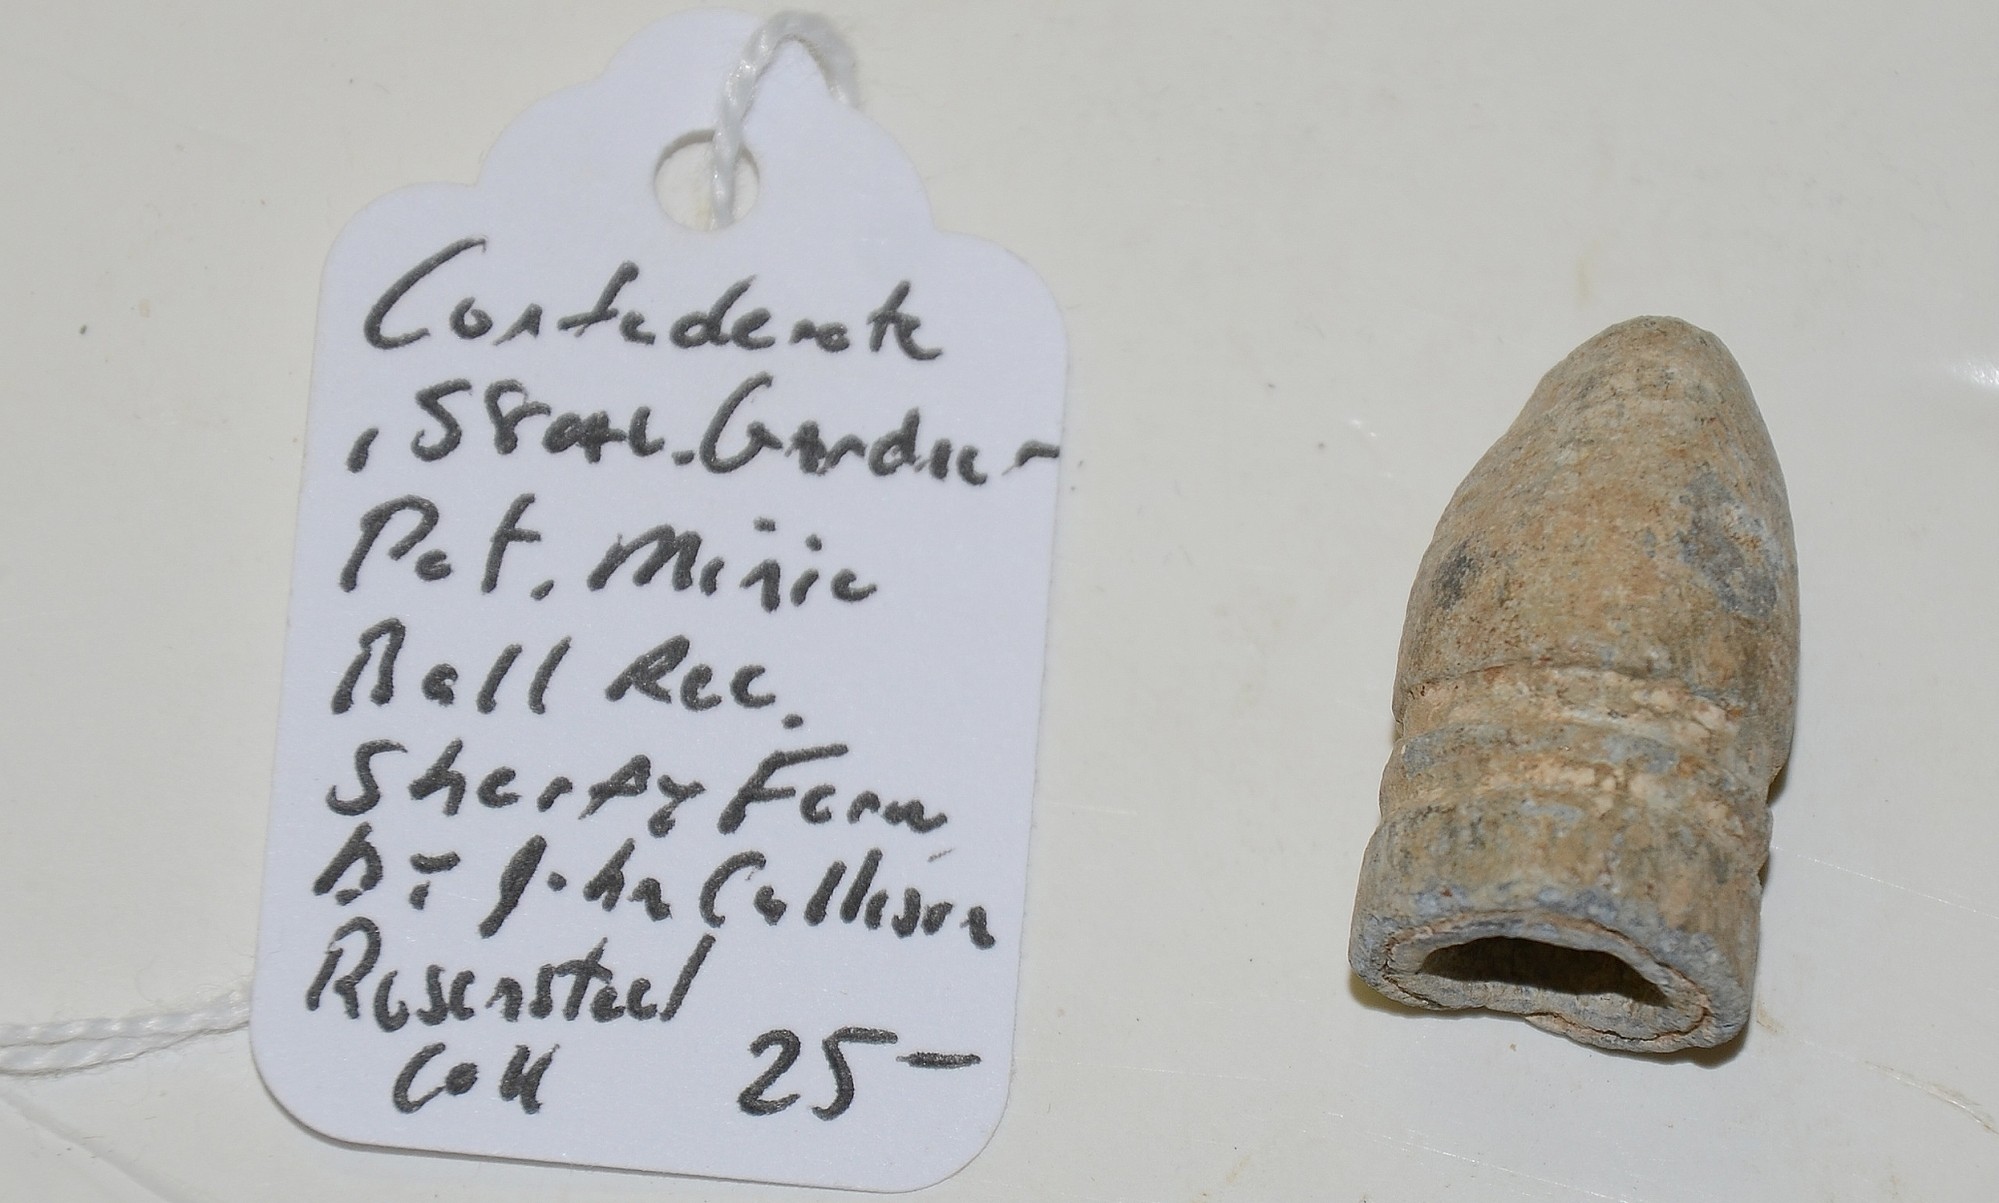 Confederate
.58 cal. Gardner
Pat. Minie
Ball Rec.
Sherfy Farm
By John Cullison
Rosensteel
Coll 25-